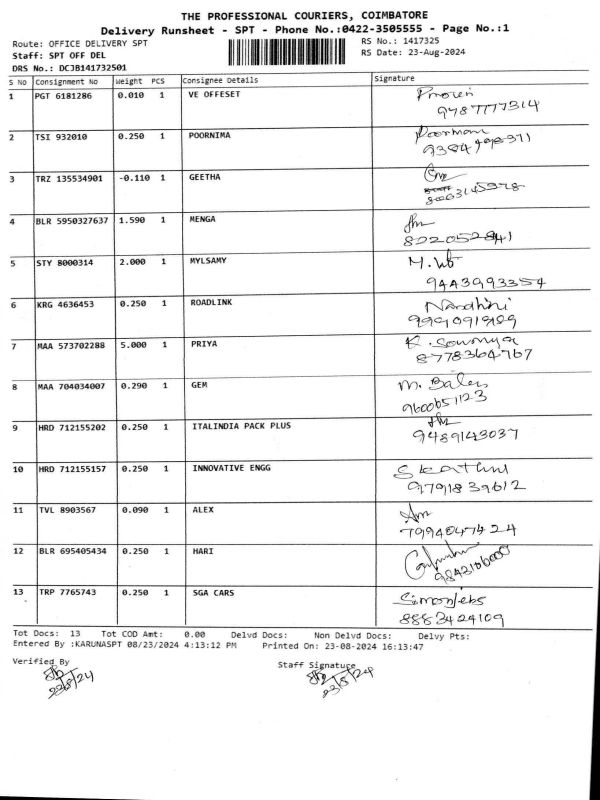 THE PROFESSIONAL COURIERS, COIMBATORE
Delivery Runsheet - SPT - Phone No.:0422-3505555 - Page No.:1
Route: OFFICE DELIVERY SPT RS No.: 1417325
Staff: SPT OFF DEL RS Date: 23-Aug-2024
DRS No.: DCJB141732501
S No Consignment No Weight PCS Consignee Details Signature
1 PGT 6181286 0.010 1 VE OFFESET
9787777314
2 TSI 932010 0.250 1 POORNIMA
3 TRZ 135534901 -0.110 1 GEETHA
4 BLR 5950327637 1.590 1 MENGA
822052841
5 STY 8000314 2.000 1 MYLSAMY
9443993354
6 KRG 4636453 0.250 1 ROADLINK Nandhini
7 MAA 573702288 5.000 1 PRIYA K. Sowmya
8778364767
8 MAA 704034007 0.290 1 GEM
9600651123
9 HRD 712155202 0.250 1 ITALINDIA PACK PLUS
9489143037
10 HRD 712155157 0.250 1 INNOVATIVE ENGG
9791839612
11 TVL 8903567 0.090 1 ALEX
7994047424
12 BLR 695405434 0.250 1 HARI
9842106000
13 TRP 7765743 0.250 1 SGA CARS
8883424109
Tot Docs: 13 Tot COD Amt: 0.00 Delvd Docs: Non Delvd Docs: Delvy Pts:
Entered By :KARUNASPT 08/23/2024 4:13:12 PM Printed On: 23-08-2024 16:13:47
Verified By Staff Signature
23/8/24 23/8/24